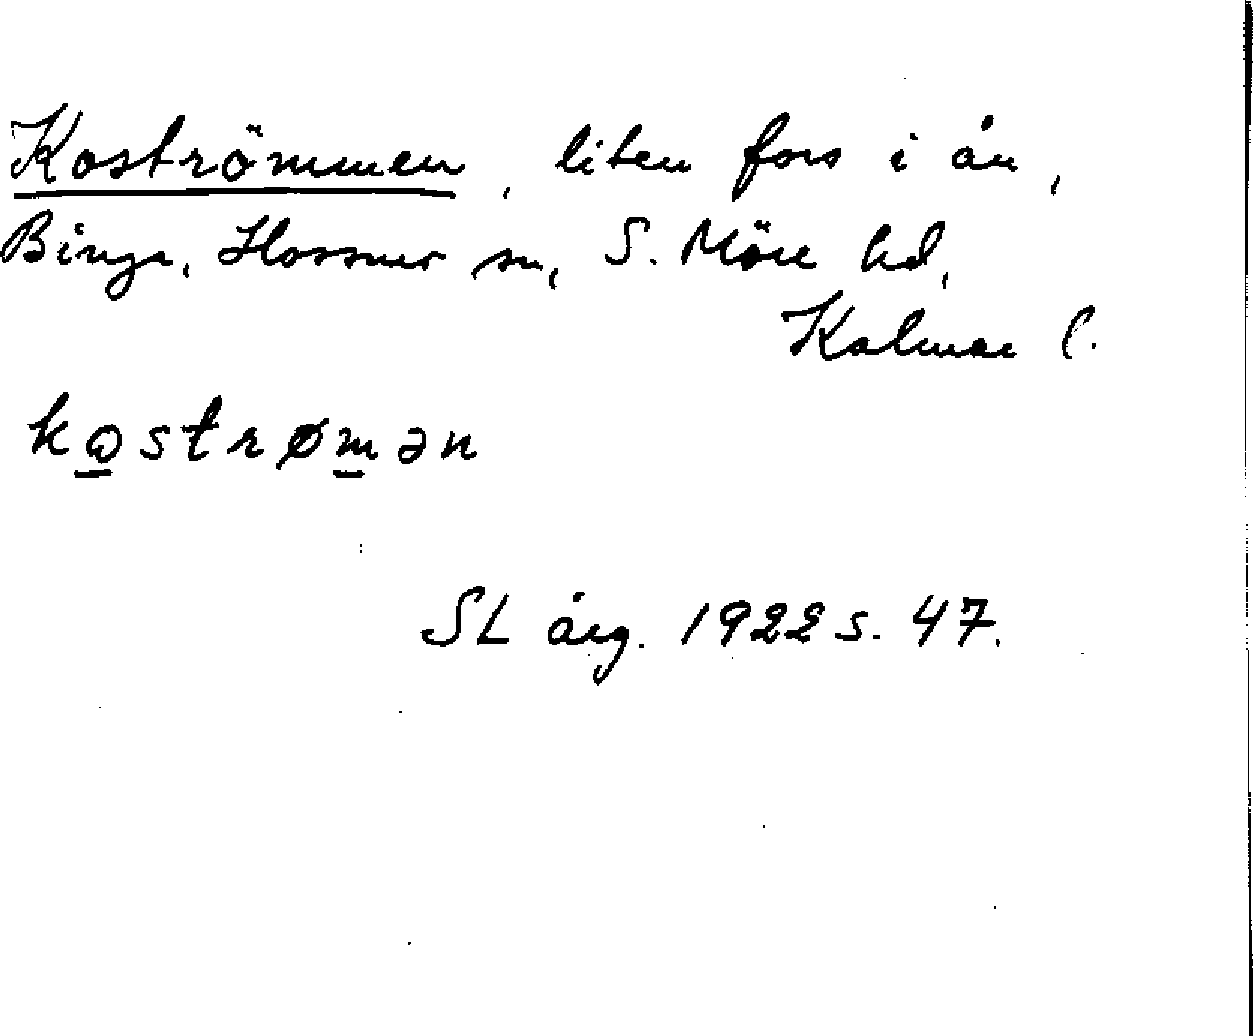 Koströmmen, liten fors i ån,
Binga, Hossmo sn, S. Möre hd,
Kalmar l.
ko̲strøm̲ən
SL årg. 1922 s. 47.